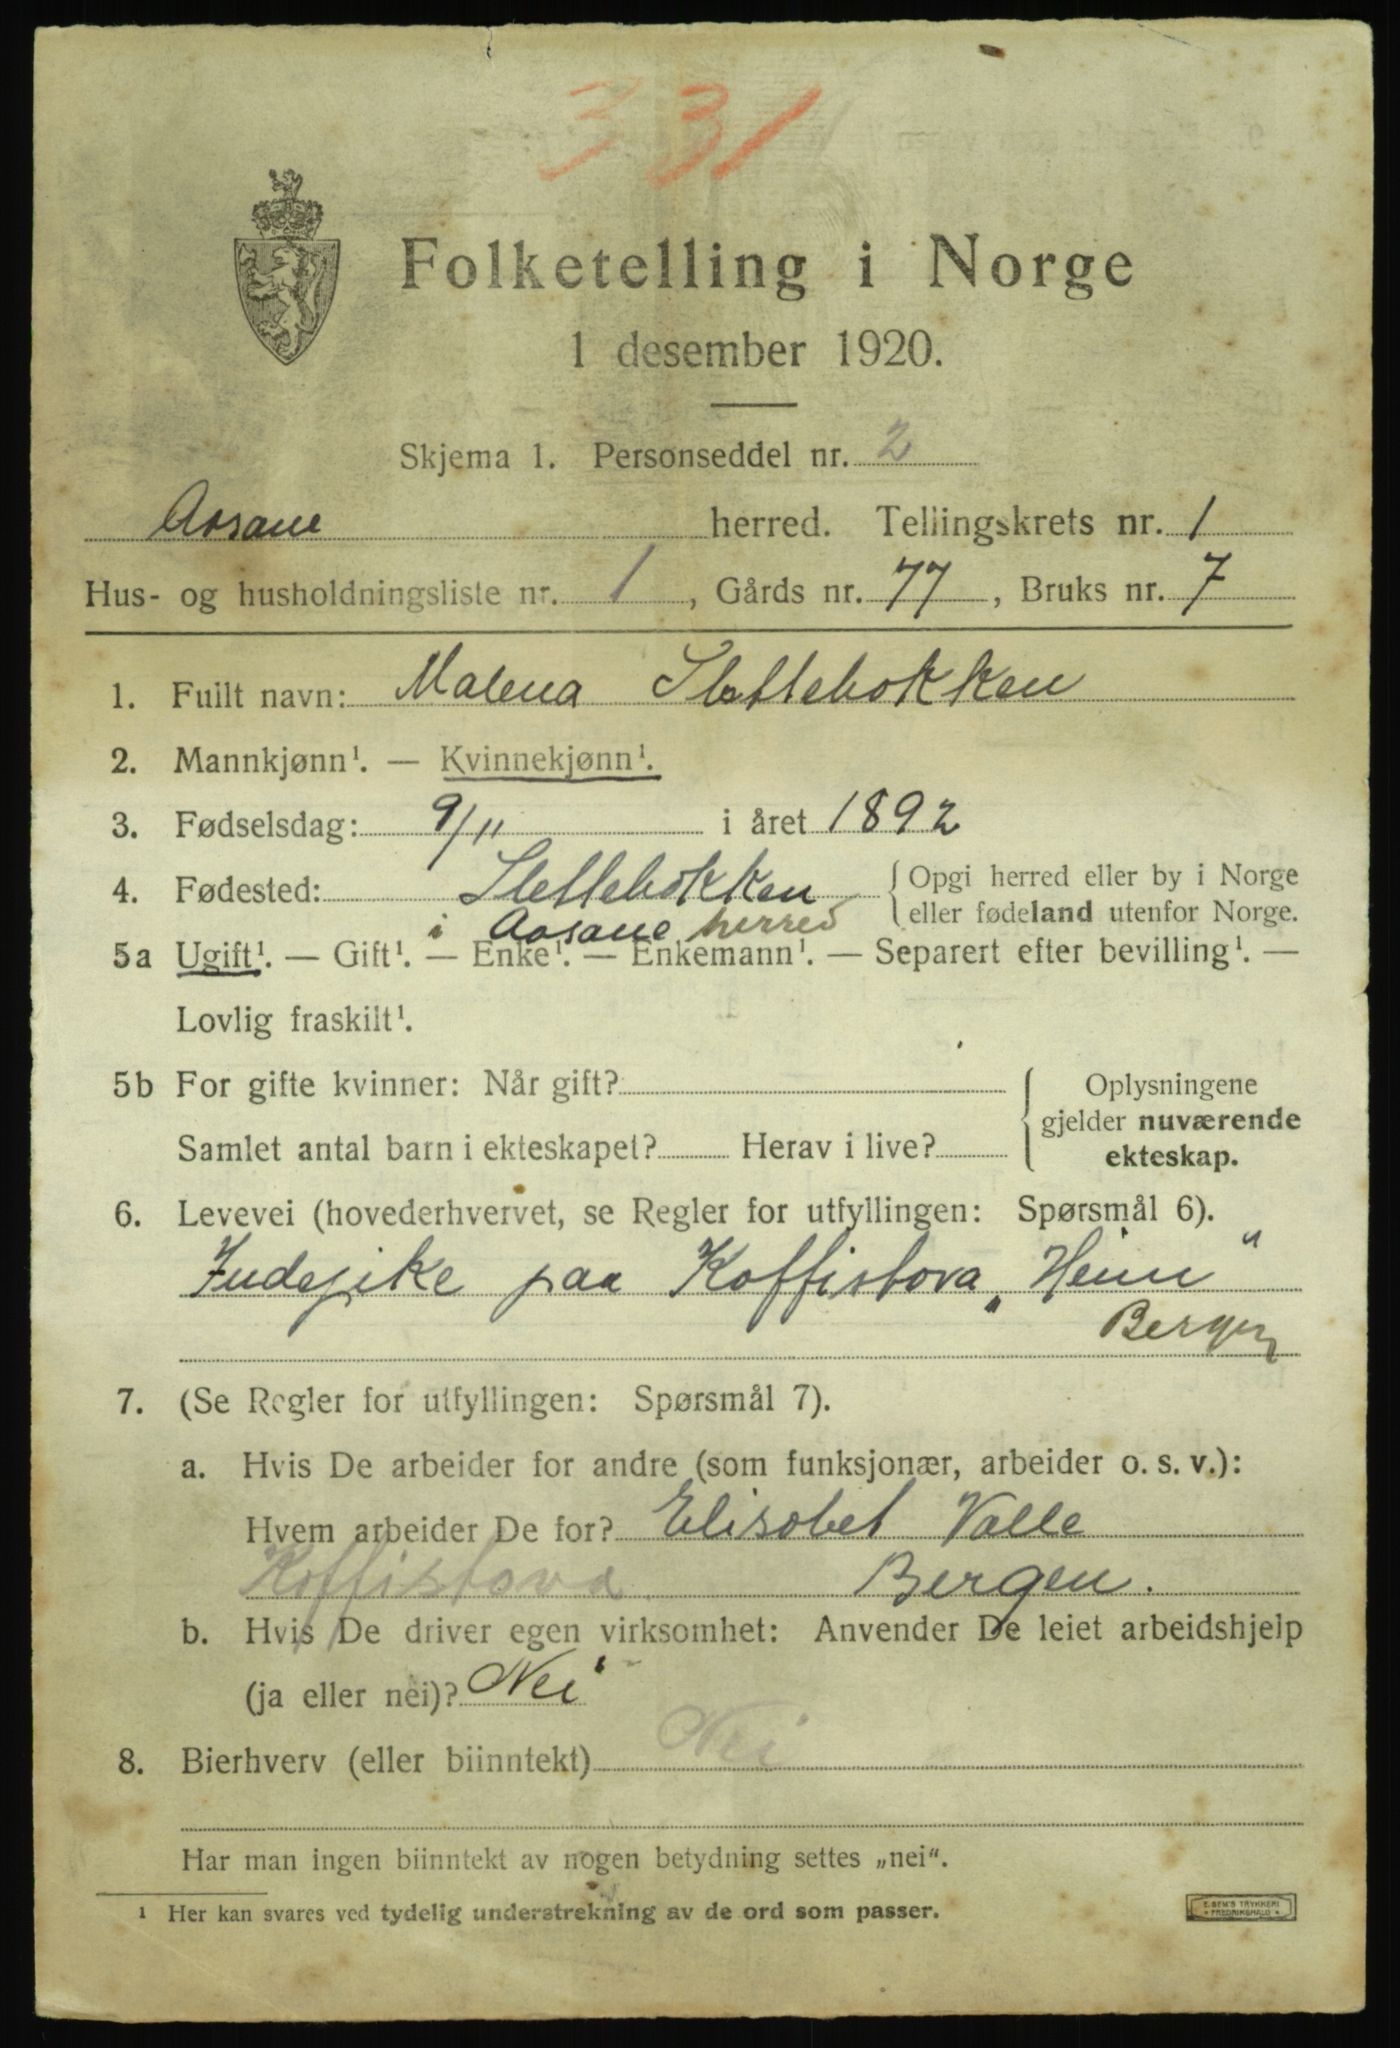 331
Folketelling i Norge
1 desember 1920.
Skjema 1. Personseddel nr. 2
Aasane herred. Tellingskrets nr. 1
Hus- og husholdningsliste nr. 1, Gårds nr. 77, Bruks nr. 7
1. Fullt navn: Malena Slettebakken
2. Mannkjønn¹. — Kvinnekjønn¹.
3. Fødselsdag: 9/11 i året 1892
4. Fødested: Slettebakken { Opgi herred eller by i Norge
eller fødeland utenfor Norge.
i Aasane herred
5a Ugift¹. — Gift¹. — Enke¹. — Enkemann¹. — Separert efter bevilling¹. —
Lovlig fraskilt¹.
5b For gifte kvinner: Når gift? { Oplysningene
gjelder nuværende
Samlet antal barn i ekteskapet? Herav i live? ekteskap.
6. Levevei (hovederhvervet, se Regler for utfyllingen: Spørsmål 6).
Indejike paa Kaffistova „Heim"
Bergen
7. (Se Regler for utfyllingen: Spørsmål 7).
a. Hvis De arbeider for andre (som funksjonær, arbeider o. s. v.):
Hvem arbeider De for? Elisabet Valle
Kaffistova Bergen.
b. Hvis De driver egen virksomhet: Anvender De leiet arbeidshjelp
(ja eller nei)? Nei
8. Bierhverv (eller biinntekt) Nei
Har man ingen biinntekt av nogen betydning settes „nei".
¹ Her kan svares ved tydelig understrekning av de ord som passer.
E. SEM'S TRYKKERI
FREDRIKSHALD